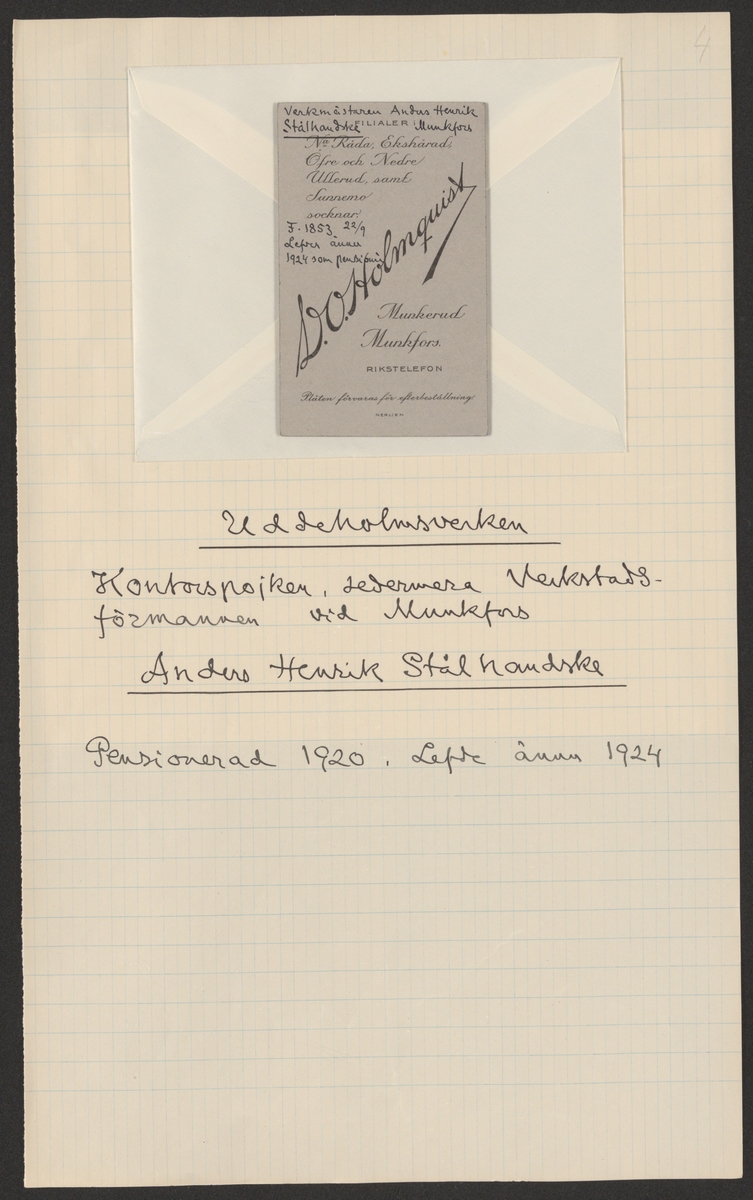 4
Verkmästaren Anders Henrik
Stålhandske FILIALER i Munkfors
Na Råda, Ekshärads
Öfre och Nedre
Ullerud, samt
Sunnemo
socknar.
F. 1853 22/9
Lefver ännu
1924 som pensionär
D.O. Holmquist
Munkerud
Munkfors.
RIKSTELEFON
Plåten förvaras för efterbeställning
NERLIEN
Uddeholmsverken
Kontorspojken, sedermera Verkstads-
förmannen vid Munkfors
Anders Henrik Stålhandske
Pensionerad 1920. Lefde ännu 1924